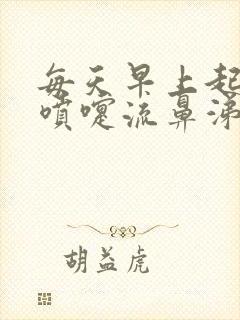 每天早上起
喷嚏流鼻涕
胡益虎